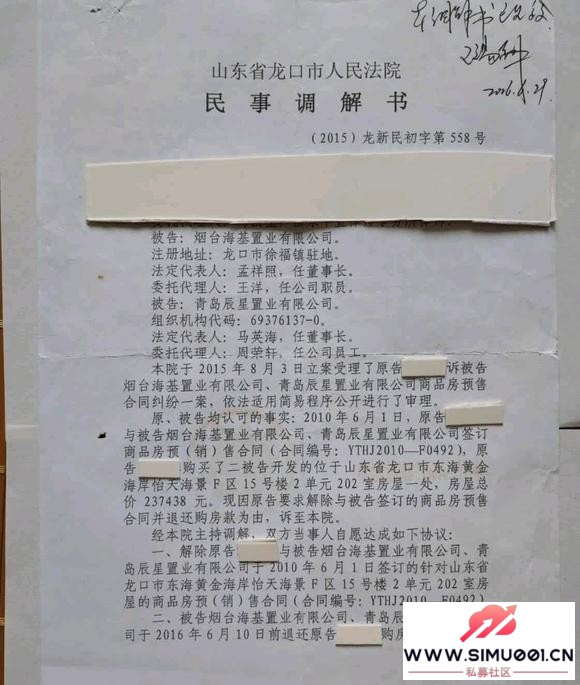 2016.
山东省龙口市人民法院
民事调解书
(2015)龙新民初字第558号
被告：烟台海基置业有限公司。
注册地址：龙口市徐福镇驻地。
法定代表人：孟祥照，任董事长。
委托代理人：王洋，任公司职员。
被告：青岛辰星置业有限公司。
组织机构代码：69376137-0。
法定代表人：马英海，任董事长。
委托代理人：周荣轩，任公司员工。
本院于2015年8月3日立案受理了原告 诉被告
烟台海基置业有限公司、青岛辰星置业有限公司商品房预售
合同纠纷一案，依法适用简易程序公开进行了审理。
原、被告均认可的事实：2010年6月1日，原告
与被告烟台海基置业有限公司、青岛辰星置业有限公司签订
商品房预（销）售合同（合同编号：YTHJ2010—F0492），原
告 购买了二被告开发的位于山东省龙口市东海黄金
海岸怡天海景F区15号楼2单元202室房屋一处，房屋总
价237438元。现因原告要求解除与被告签订的商品房预售
合同并退还购房款为由，诉至本院。
经本院主持调解，双方当事人自愿达成如下协议：
一、解除原告 与被告烟台海基置业有限公司、青
岛辰星置业有限公司于2010年6月1日签订的针对山东省
龙口市东海黄金海岸怡天海景F区15号楼2单元202室房
屋的商品房预（销）售合同（合同编号：YTHJ2010—F0492）
二、被告烟台海基置业有限公司、青岛辰
司于2016年6月10日前退还原告 购房
WWW.SIMU001.CN
私募社区